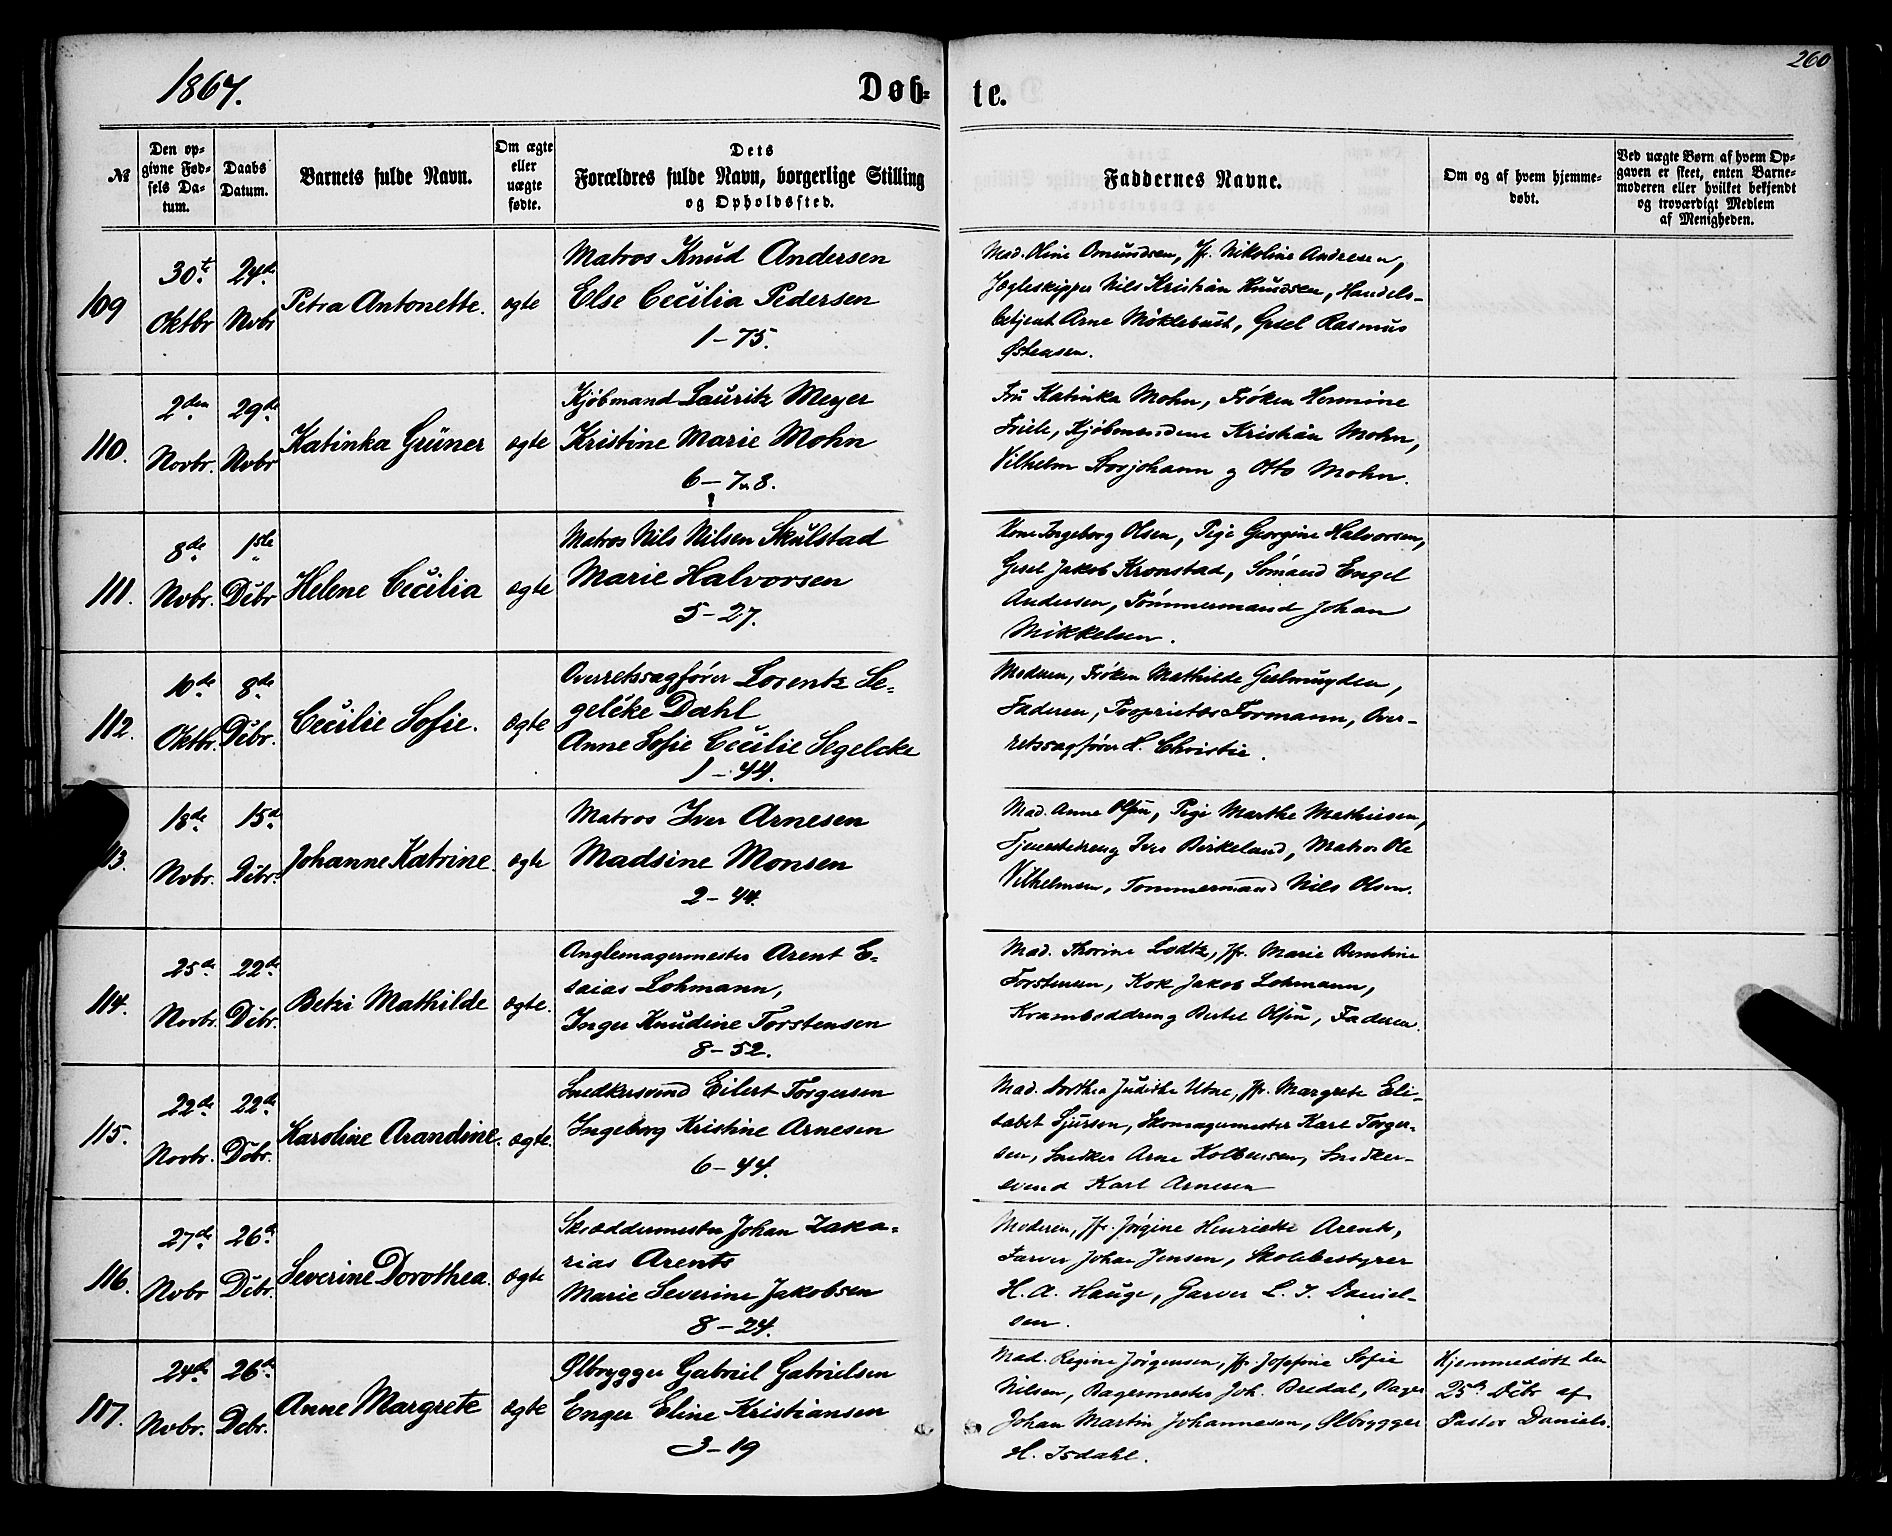 260
1867.
Døb-
te.
№
Den op-
givne Fød-
sels Da-
tum.
Daabs
Datum.
Barnets fulde Navn.
Om ægte
eller
uægte
fødte.
Dets
Forældres fulde Navn, borgerlige Stilling
og Opholdssted.
Faddernes Navne.
Om og af hvem hjemme-
døbt.
Ved uægte Børn af hvem Op-
gaven er skeet, enten Barne-
moderen eller hvilket bekjendt
og troværdigt Medlem
af Menigheden.
109
30te
Oktbr
24de
Nvbr
Petra Antonette.
ægte
Matros Knud Andersen
Else Cecilia Pedersen
1-75.
Mad. Oline Omundsen, Jfr. Nikoline Andresen,
Jægteskipper Nils Kristian Knudsen, Handels-
betjent Arne Møklebust, Gesel Rasmus
Østensen.
110.
2den
Novbr.
29de
Nvbr
Katinka Grüner
ægte
Kjøbmand Lauritz Meyer
Kristine Marie Mohn
6-7.8.
Fru Katinka Mohn, Frøken Hermine
Friele, Kjøbmændene Kristian Mohn,
Vilhelm Storjohann g Otto Mohn.
111.
8de
Nvbr.
1ste
Dcbr
Helene Cecilia
ægte
Matros Nils Nilsen Skulstad
Marie Halvorsen
5-27.
Kone Ingeborg Olsen, Pige Georgine Halvorsen,
Gesel Jakob Kronstad, Sømand Engel
Andersen, Tømmermand Johan
Mikkelsen.
112.
10de
Oktbr.
8de
Dcbr.
Cecilie Sofie.
ægte
Overretssagfører Lorentz Se-
gelcke Dahl
Anne Sofie Cecilie Segelcke
1-44.
Moderen, Frøken Mathilde Geelmuyden,
Faderen, Proprietær Formann, Over-
retssagfører H. Christie.
113.
18de
Nvbr.
15de
Dcbr.
Johanne Katrine.
ægte
Matros Iver Arnesen
Madsine Monsen
2-44.
Mad. Anne Olsen, Pige Marthe Mathiesen,
Tjenestedreng Iver Birkeland, Matros Ole
Vilhelmsen, Tømmermand Nils Olsen.
114.
25de
Novbr.
22de
Dcbr.
Betzi Mathilde
ægte.
Anglemagermester Arent E-
saias Lohmann,
Inger Knudine Torstensen
8-52.
Mad. Thorine Lodtz, Jfr. Marie Berntine
Torstensen, Kok Jakob Lohmann,
Kramboddreng Bertel Olsen, Faderen.
115.
22de
Novbr.
22de
Dcbr.
Karoline Arandine.
ægte.
Snedkersvend Eilert Torgersen
Ingeborg Kristine Arnesen
6-44.
Mad. Dorthea Judithe Utne, Jfr. Margrete Eli-
sabet Sjursen, Skomagermester Karl Torger-
sen, Snedker Arne Kolbensen, Snedker-
svend Karl Arnesen
116.
27de
Nvbr
26de
Dcbr.
Severine Dorothea.
ægte
Skræddermester Johan Zaka-
rias Arents
Marie Severine Jakobsen
8-24.
Moderen, Jfr. Jørgine Henriette Arents,
Farver Johan Jensen, Skolebestyrer
H. A. Hauge, Garver L. J. Daniel-
sen.
117.
24de
Nvbr.
26de
Dcbr.
Anne Margrete
ægte
Ølbrygger Gabriel Gabrielsen
Enger Eline Kristiansen
3-19
Mad. Regine Jørgensen, Jfr. Josefine Sofie
Nilsen, Bagermester Joh. Bredal, Bager
Johan Martin Johannesen, Ølbrygger
H. Isdahl.
Hjemmedøbt den
25de Dcbr af
Pastor Daniels.